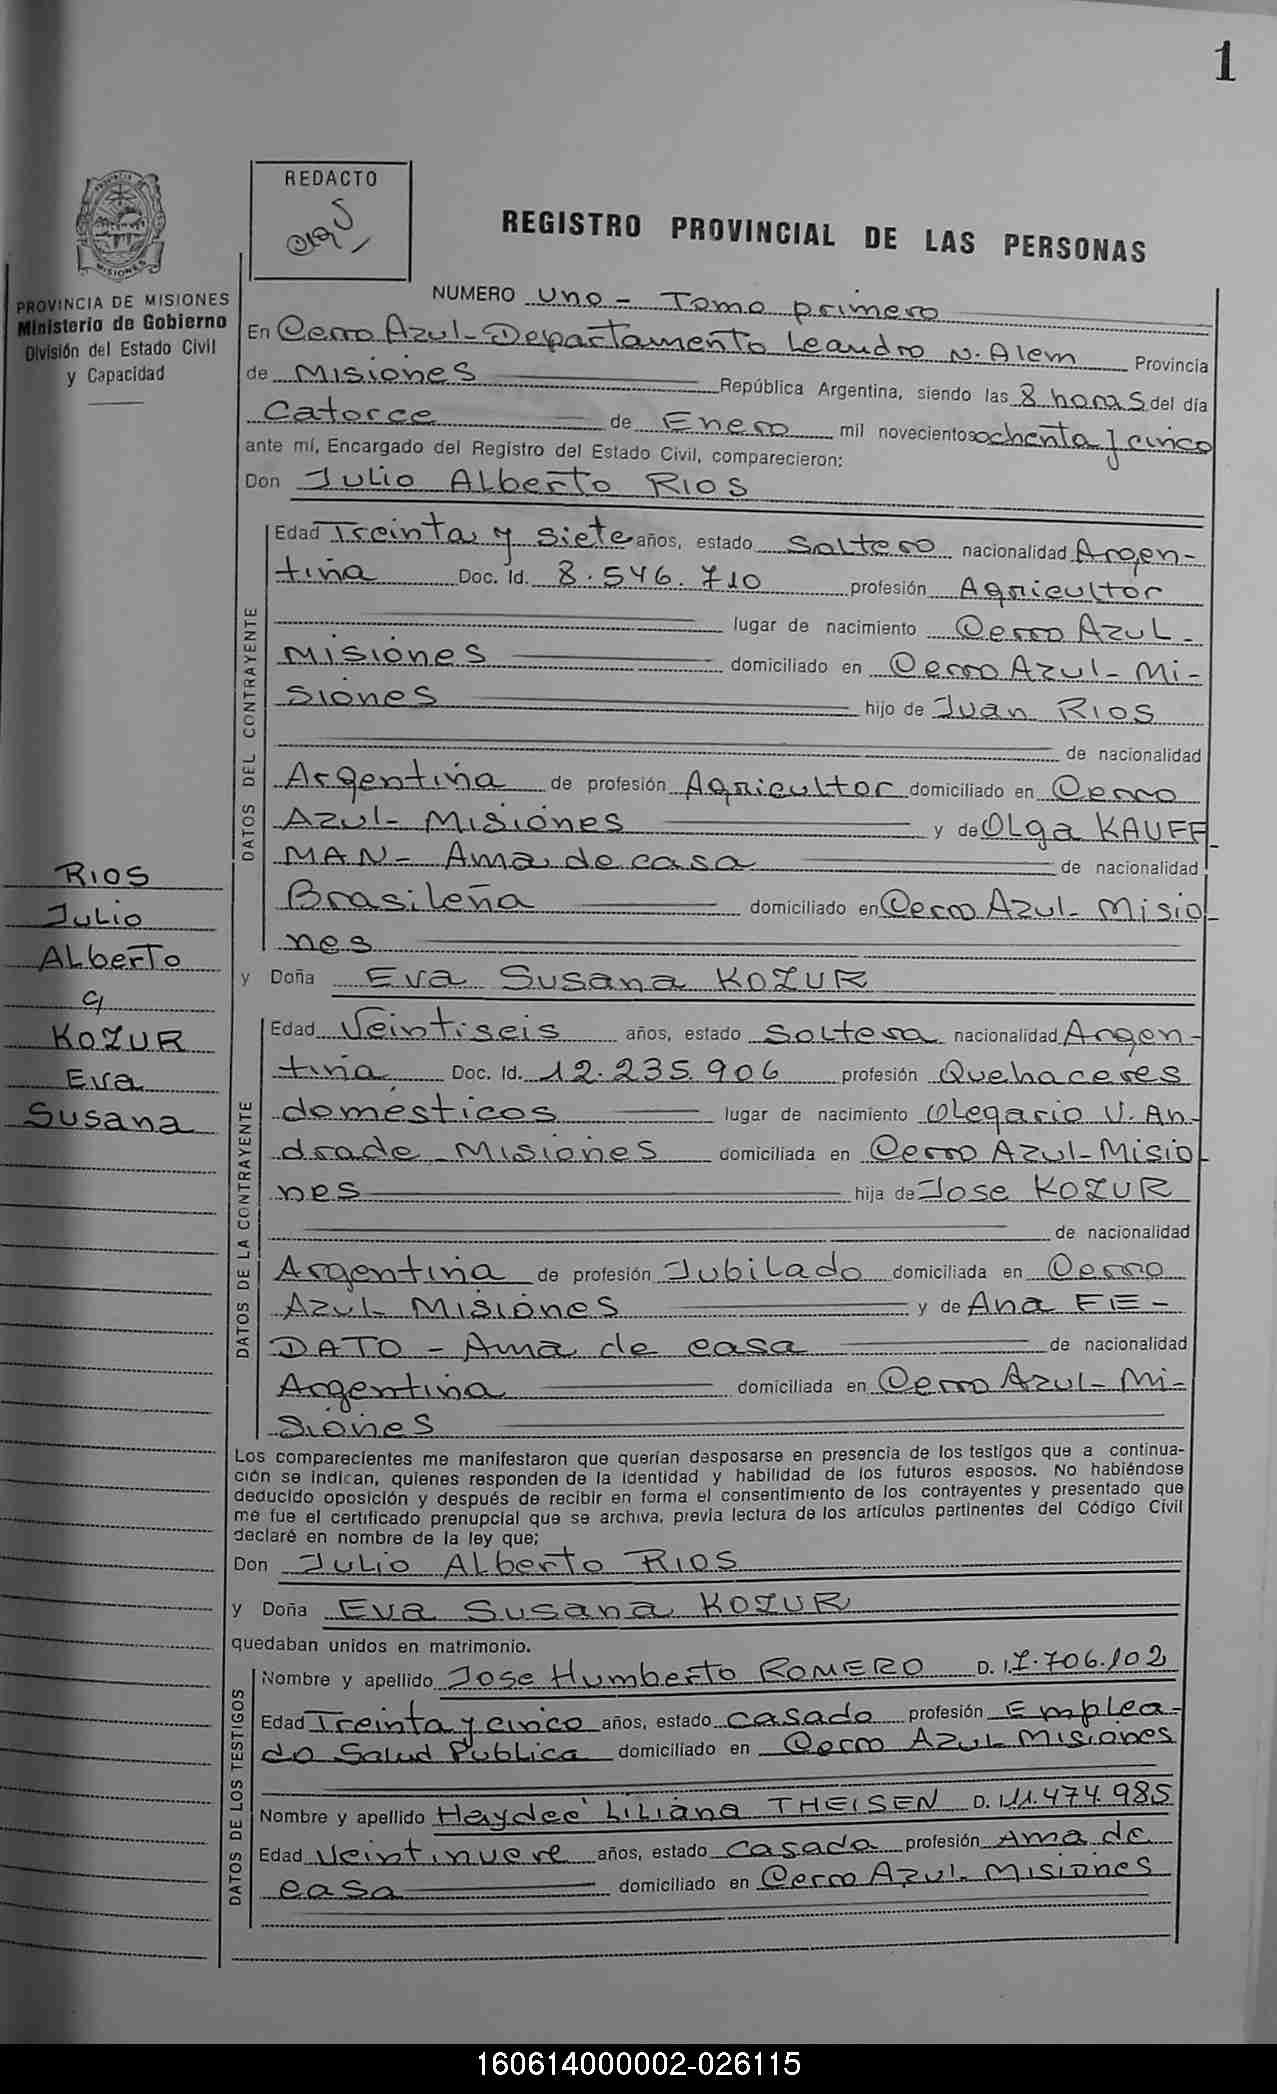 1
REDACTO
REGISTRO PROVINCIAL DE LAS PERSONAS
MISIONES
PROVINCIA DE MISIONES
Ministerio de Gobierno
División del Estado Civil
y Capacidad
NUMERO uno - Tomo primero
En Cerro Azul - Departamento Leandro N. Alem Provincia
de Misiones República Argentina, siendo las 8 horas del día
Catorce de Enero mil novecientos ochenta y cinco
ante mí, Encargado del Registro del Estado Civil, comparecieron:
Don Julio Alberto RIOS
DATOS DEL CONTRAYENTE
Edad Treinta y siete años, estado soltero nacionalidad Argen-
tina Doc. Id. 8.546.710 profesión Agricultor
lugar de nacimiento Cerro Azul -
Misiones domiciliado en Cerro Azul - Mi-
siones hijo de Juan RIOS
de nacionalidad
Argentina de profesión Agricultor domiciliado en Cerro
Azul - Misiones y de Olga KAUFF-
MAN - Ama de casa de nacionalidad
Brasileña domiciliado en Cerro Azul - Misio-
nes
RIOS
Julio
Alberto
y
KOZUR
Eva
Susana
y Doña Eva Susana KOZUR
DATOS DE LA CONTRAYENTE
Edad Veintiseis años, estado soltera nacionalidad Argen-
tina Doc. Id. 12.235.906 profesión Quehaceres
domésticos lugar de nacimiento Olegario V. An-
drade - Misiones domiciliada en Cerro Azul - Misio-
nes hija de Jose KOZUR
de nacionalidad
Argentina de profesión Jubilado domiciliada en Cerro
Azul - Misiones y de Ana FIE-
DATO - Ama de casa de nacionalidad
Argentina domiciliada en Cerro Azul - Mi-
siones
Los comparecientes me manifestaron que querían desposarse en presencia de los testigos que a continua-
ción se indican, quienes responden de la identidad y habilidad de los futuros esposos. No habiéndose
deducido oposición y después de recibir en forma el consentimiento de los contrayentes y presentado que
me fue el certificado prenupcial que se archiva, previa lectura de los artículos pertinentes del Código Civil
declaré en nombre de la ley que;
Don Julio Alberto RIOS
y Doña Eva Susana KOZUR
quedaban unidos en matrimonio.
DATOS DE LOS TESTIGOS
Nombre y apellido Jose Humberto ROMERO D.I. 7.706.102
Edad Treinta y cinco años, estado casado profesión Emplea-
do Salud Publica domiciliado en Cerro Azul Misiones
Nombre y apellido Haydeé Liliana THEISEN D.I. 11.474.985
Edad Veintinueve años, estado casada profesión Ama de
casa domiciliado en Cerro Azul - Misiones
160614000002-026115